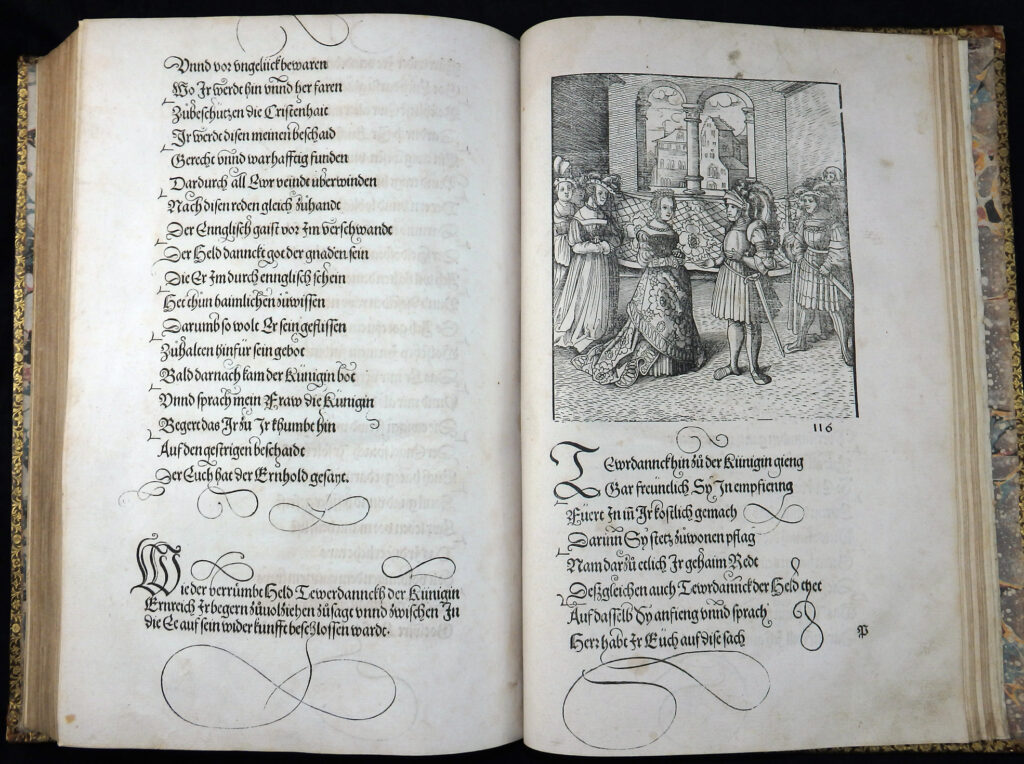 Vnnd vor vngelück bewaren
Wo Ir werdt hin vnnd her faren
Zůbeschützen die Cristenhait
Ir werdt disen meinen beschaid
Gerecht vnnd warhafftig funden
Dardurch all Ewr veindt uberwinden
Nach disen reden gleich zůhandt
Der Ennglisch gaist vor Im verschwandt
Der Held dannckt got der gnaden sein
Die Er Im durch ennglisch schein
Het thůn haimlichen zůwissen
Darumb so wolt Er sein geflissen
Zůhalten hinfür sein gebot
Bald darnach kam der Künigin bot
Vnnd sprach mein Fraw die Künigin
Begert das Ir zů Ir khumbt hin
Auf den gestrigen beschaidt
Der Euch hat der Ernhold gesayt.
Wie der verrümbt Held Tewerdannckh der Künigin
Ernreich Ir begern zůuolziehen zůsagt vnnd zwischen In
die Ee auf sein widerkunfft beschlossen wardt.
116
Tewrdannck hin zů der Künigin gieng
Gar freüntlich Sy In empfienng
Füert In in Ir kostlich gemach
Darinn Sy stetz zůwonen pflag
Nam darzů etlich Ir gehaim Redt
Deßgleichen auch Tewrdannck der Held thet
Auf dasselb Sy anfieng vnnd sprach
Herr habt Ir Euch auf dise sach
P